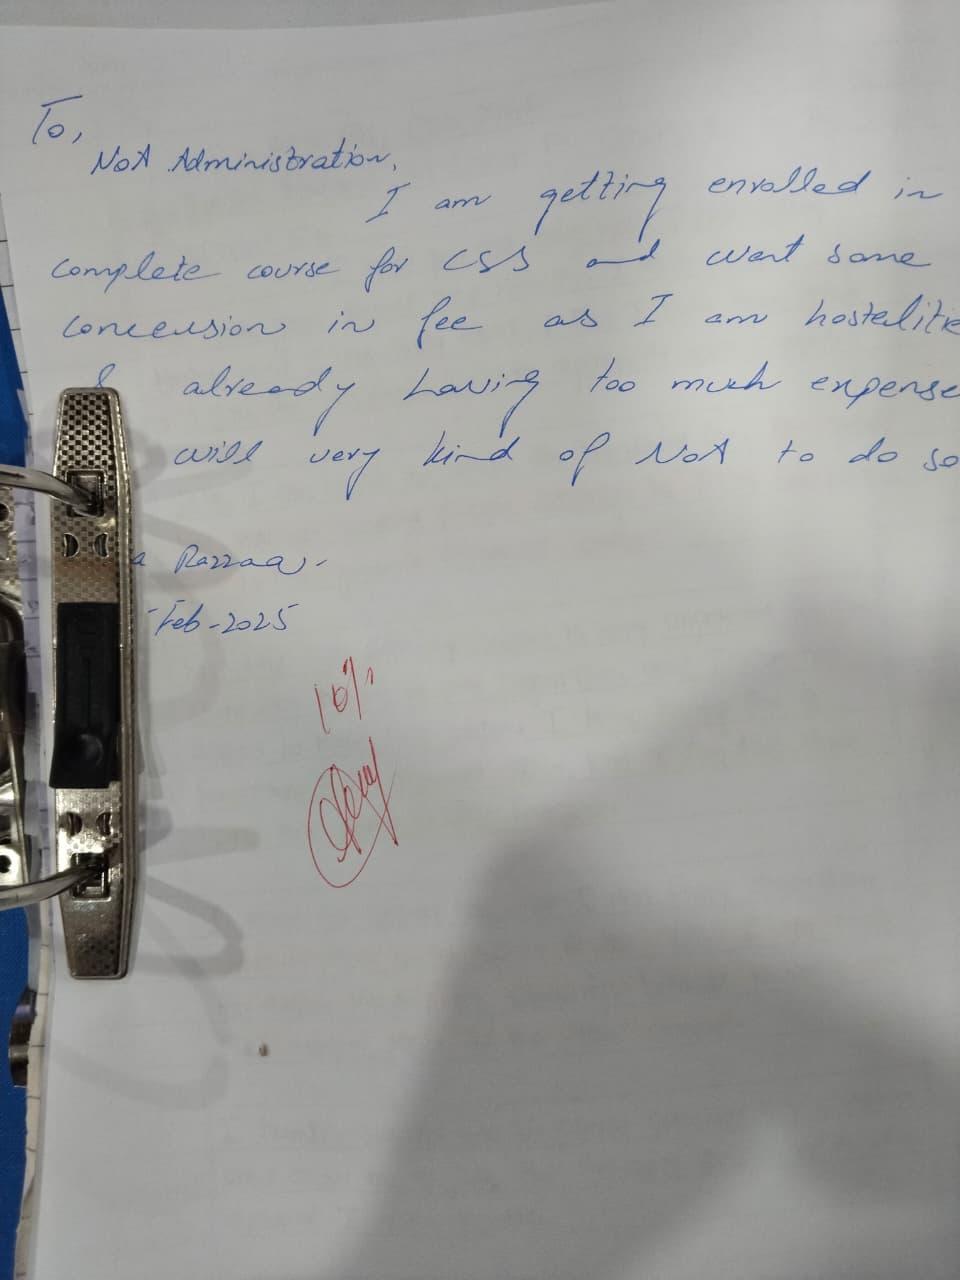 To,
NOA Administration,
I am getting enrolled in
complete course for CSS and want some
concession in fee as I am hostelite
& already having too much expense
will very kind of NOA to do so
a Razzaq.
-Feb-2025
10%